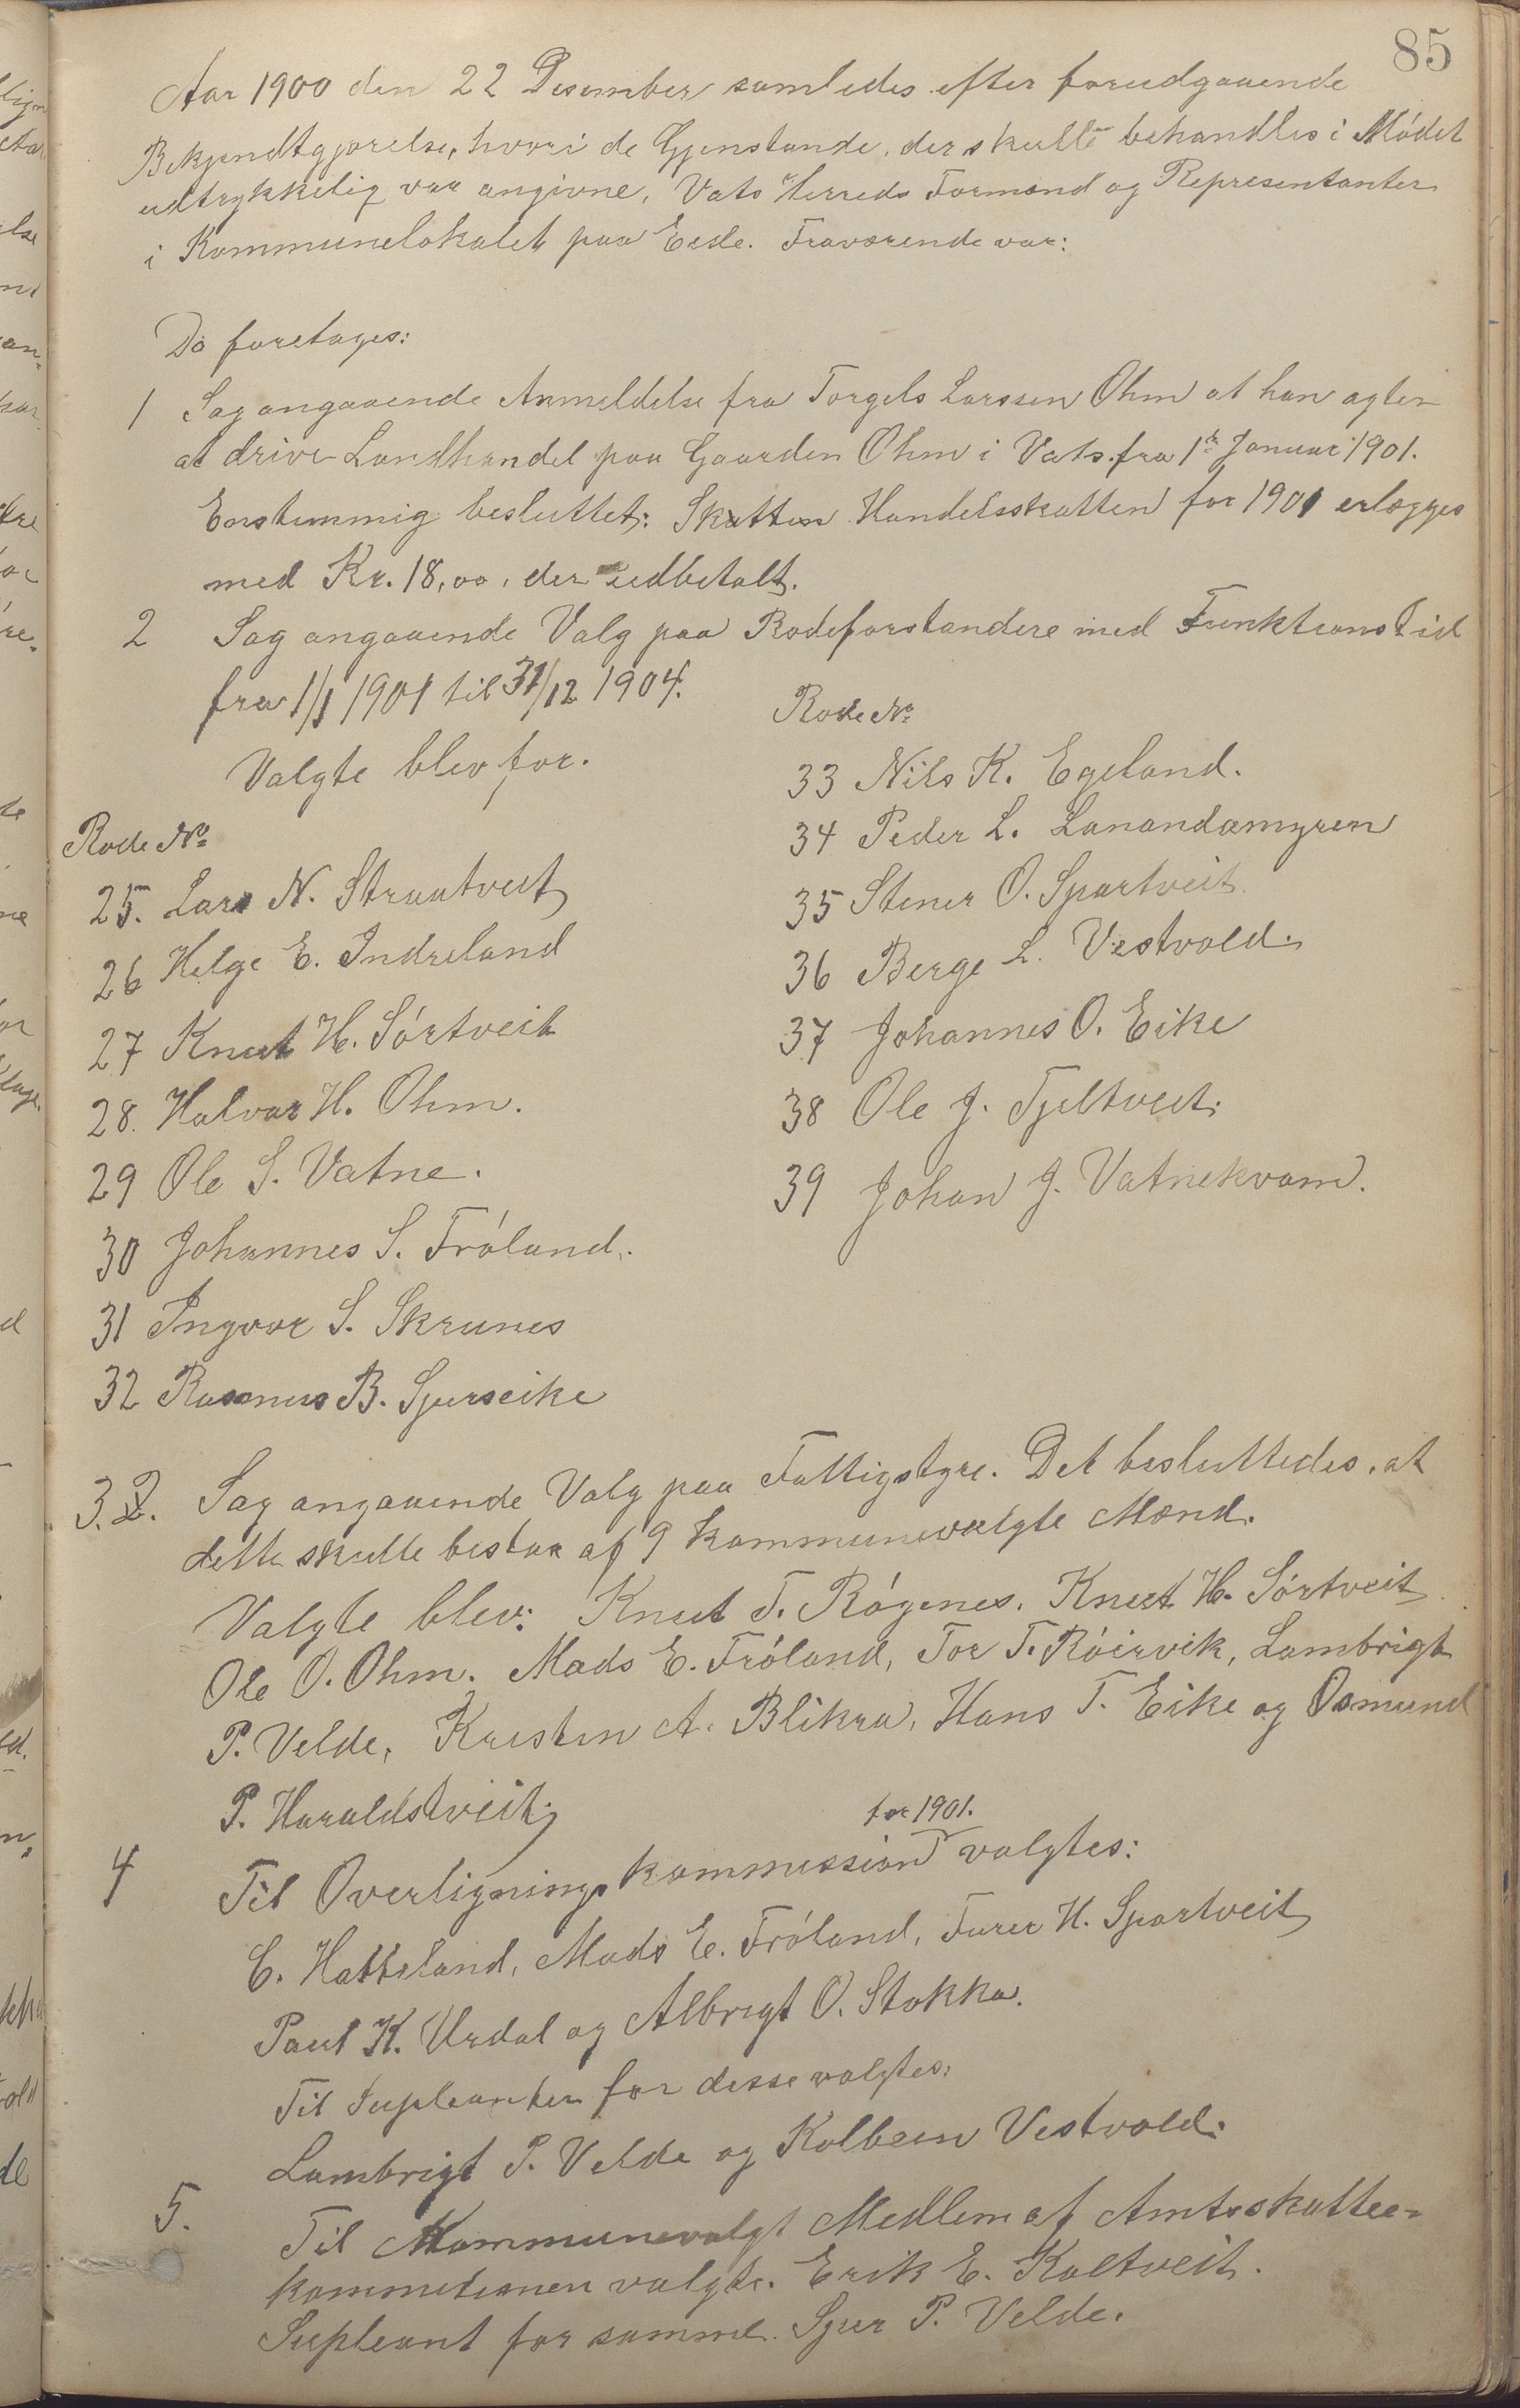 85
Aar 1900 den 22 Desember samledes efter forudgaaende
Bekjendtgjørelse, hvori de Gjenstande, der skulle behandles i Mødet
udtrykkelig var angivne, Vats Herreds Formænd og Representanter
i Kommunelokalet paa Eide. Fraværende var:
Da foretages:
1 Sag angaaende Anmeldelse fra Torgels Larssen Ohm at han agter
at drive Landhandel paa Gaarden Ohm i Vats fra 1ste Januar 1901.
Enstemmig besluttet: Skatten Handelsskatten for 1901 erlægges
med Kr. 18,00, der udbetalt.
2 Sag angaaende Valg paa Rodeforstandere med Funktionstid
fra 1/1 1901 til 31/12 1904.
Valgte blev for.
Rode No
25. Lars N. Straatveit
26 Helge E. Indreland
27 Knut H. Sørtveit
28. Halvar H. Ohm.
29 Ole S. Vatne.
30 Johannes S. Frøland.
31 Ingvar S. Skrunes
32 Rasmus B. Sjurseike
Rode No
33 Nils K. Egeland.
34 Peder L. Lanandamyren
35 Stener O. Spartveit
36 Berge L. Vestvold.
37 Johannes O. Eike
38 Ole J. Fjeltveit.
39 Johan J. Vatnekvam.
3. 2. Sag angaaende Valg paa Fattigstyre. Det besluttedes, at
dette skulle bestaa af 9 kommunevalgte Mænd.
Valgte blev: Knut T. Røgenes, Knut H. Sørtveit
Ole O. Ohm. Mads E. Frøland, Tor T. Røirvik, Lambrigt
P. Velde, Kristen A. Blikra, Hans T. Eike og Osmund
P. Haraldstveit.
for 1901.
4 Til Overligningskommission valgtes:
C. Hatteland, Mads E. Frøland, Turer H. Spartveit
Paul K. Urdal og Albrigt O. Stokka.
Til Supleanter for disse valgtes:
Lambrigt P. Velde og Kolbein Vestvold.
5. Til Kommunevalgt Medlem af Amtsskatte-
kommitionen valgte. Erik E. Kaltveit.
Supleant for samme. Sjur P. Velde.